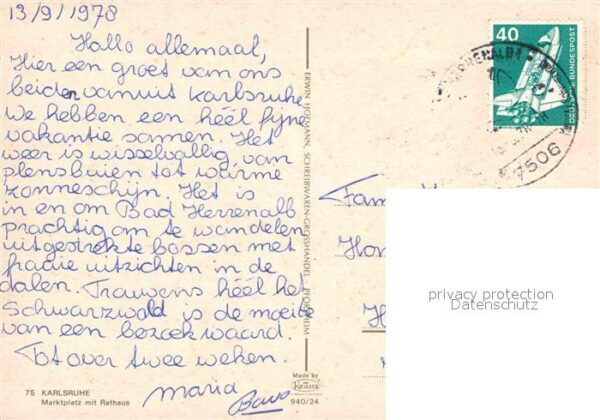 13/9/1978
Hallo allemaal,
Hier een groet van ons
beiden vanuit Karlsruhe
we hebben een héél fijne
vakantie samen. Het
weer is wisselvallig, van
plensbuien tot warme
zonneschijn. Het is
in en om Bad Herrenalb
prachtig om te wandelen
uitgestrekte bossen met
fraaie uitzichten in de
dalen. Trouwens héél het
Schwarzwald is de moeite
van een bezoek waard.
Tot over twee weken.
Maria
75 KARLSRUHE
Marktplatz mit Rathaus
ERWIN HOFMANN, SCHREIBWAREN-GROSSHANDEL, PFORZHEIM
Made by
KRÜGER
940/24
40
DEUTSCHE BUNDESPOST
HERRENALB
7506
Fam
privacy protection
Datenschutz